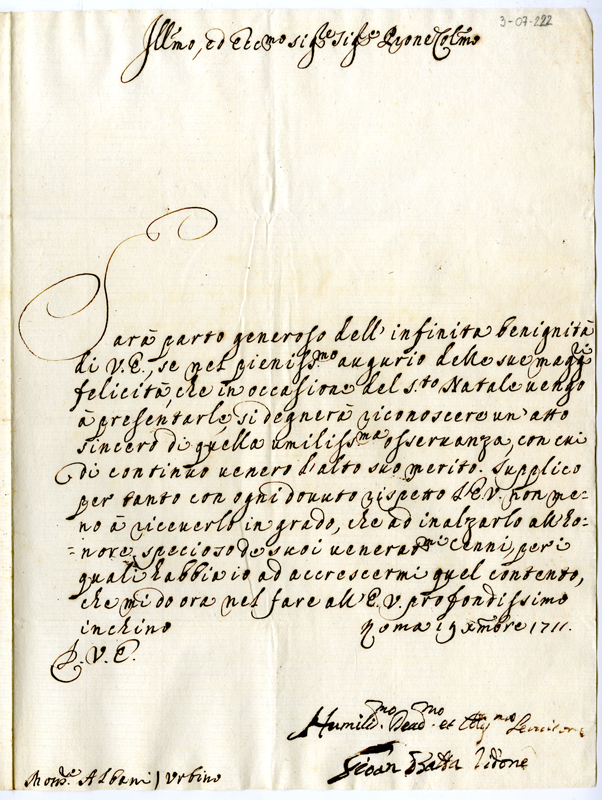 3-07-222
Ill.mo, ed Ecc.mo Sig.re Sig.re Prone Col.mo
Sarà parto generoso dell' infinita benignità
di V.E., se nel pieniss.mo augurio delle sue magg.ri
felicità che in occasione del S.to Natale uengo
à presentarle, si degnerà riconoscere un' atto
sincero di quella umiliss.ma osseruanza, con cui
di continuo uenero l'alto suo merito. Supplico
per tanto con ogni douuto rispetto l'E.V. non me=
no à riceuerlo in grado, che ad inalzarlo all' ho=
=nore specioso de suoi uenerat.mi cenni, per i
quali habbia io ad accrescermi quel contento,
che mi do ora nel fare all' E.V. profondissimo
inchino Roma 19 Xmbre 1711.
D. V. E.
Humiliss.mo Deuo.mo et Obblig.mo Seruitore
Gioan Batta
Mons.re Albani / Urbino